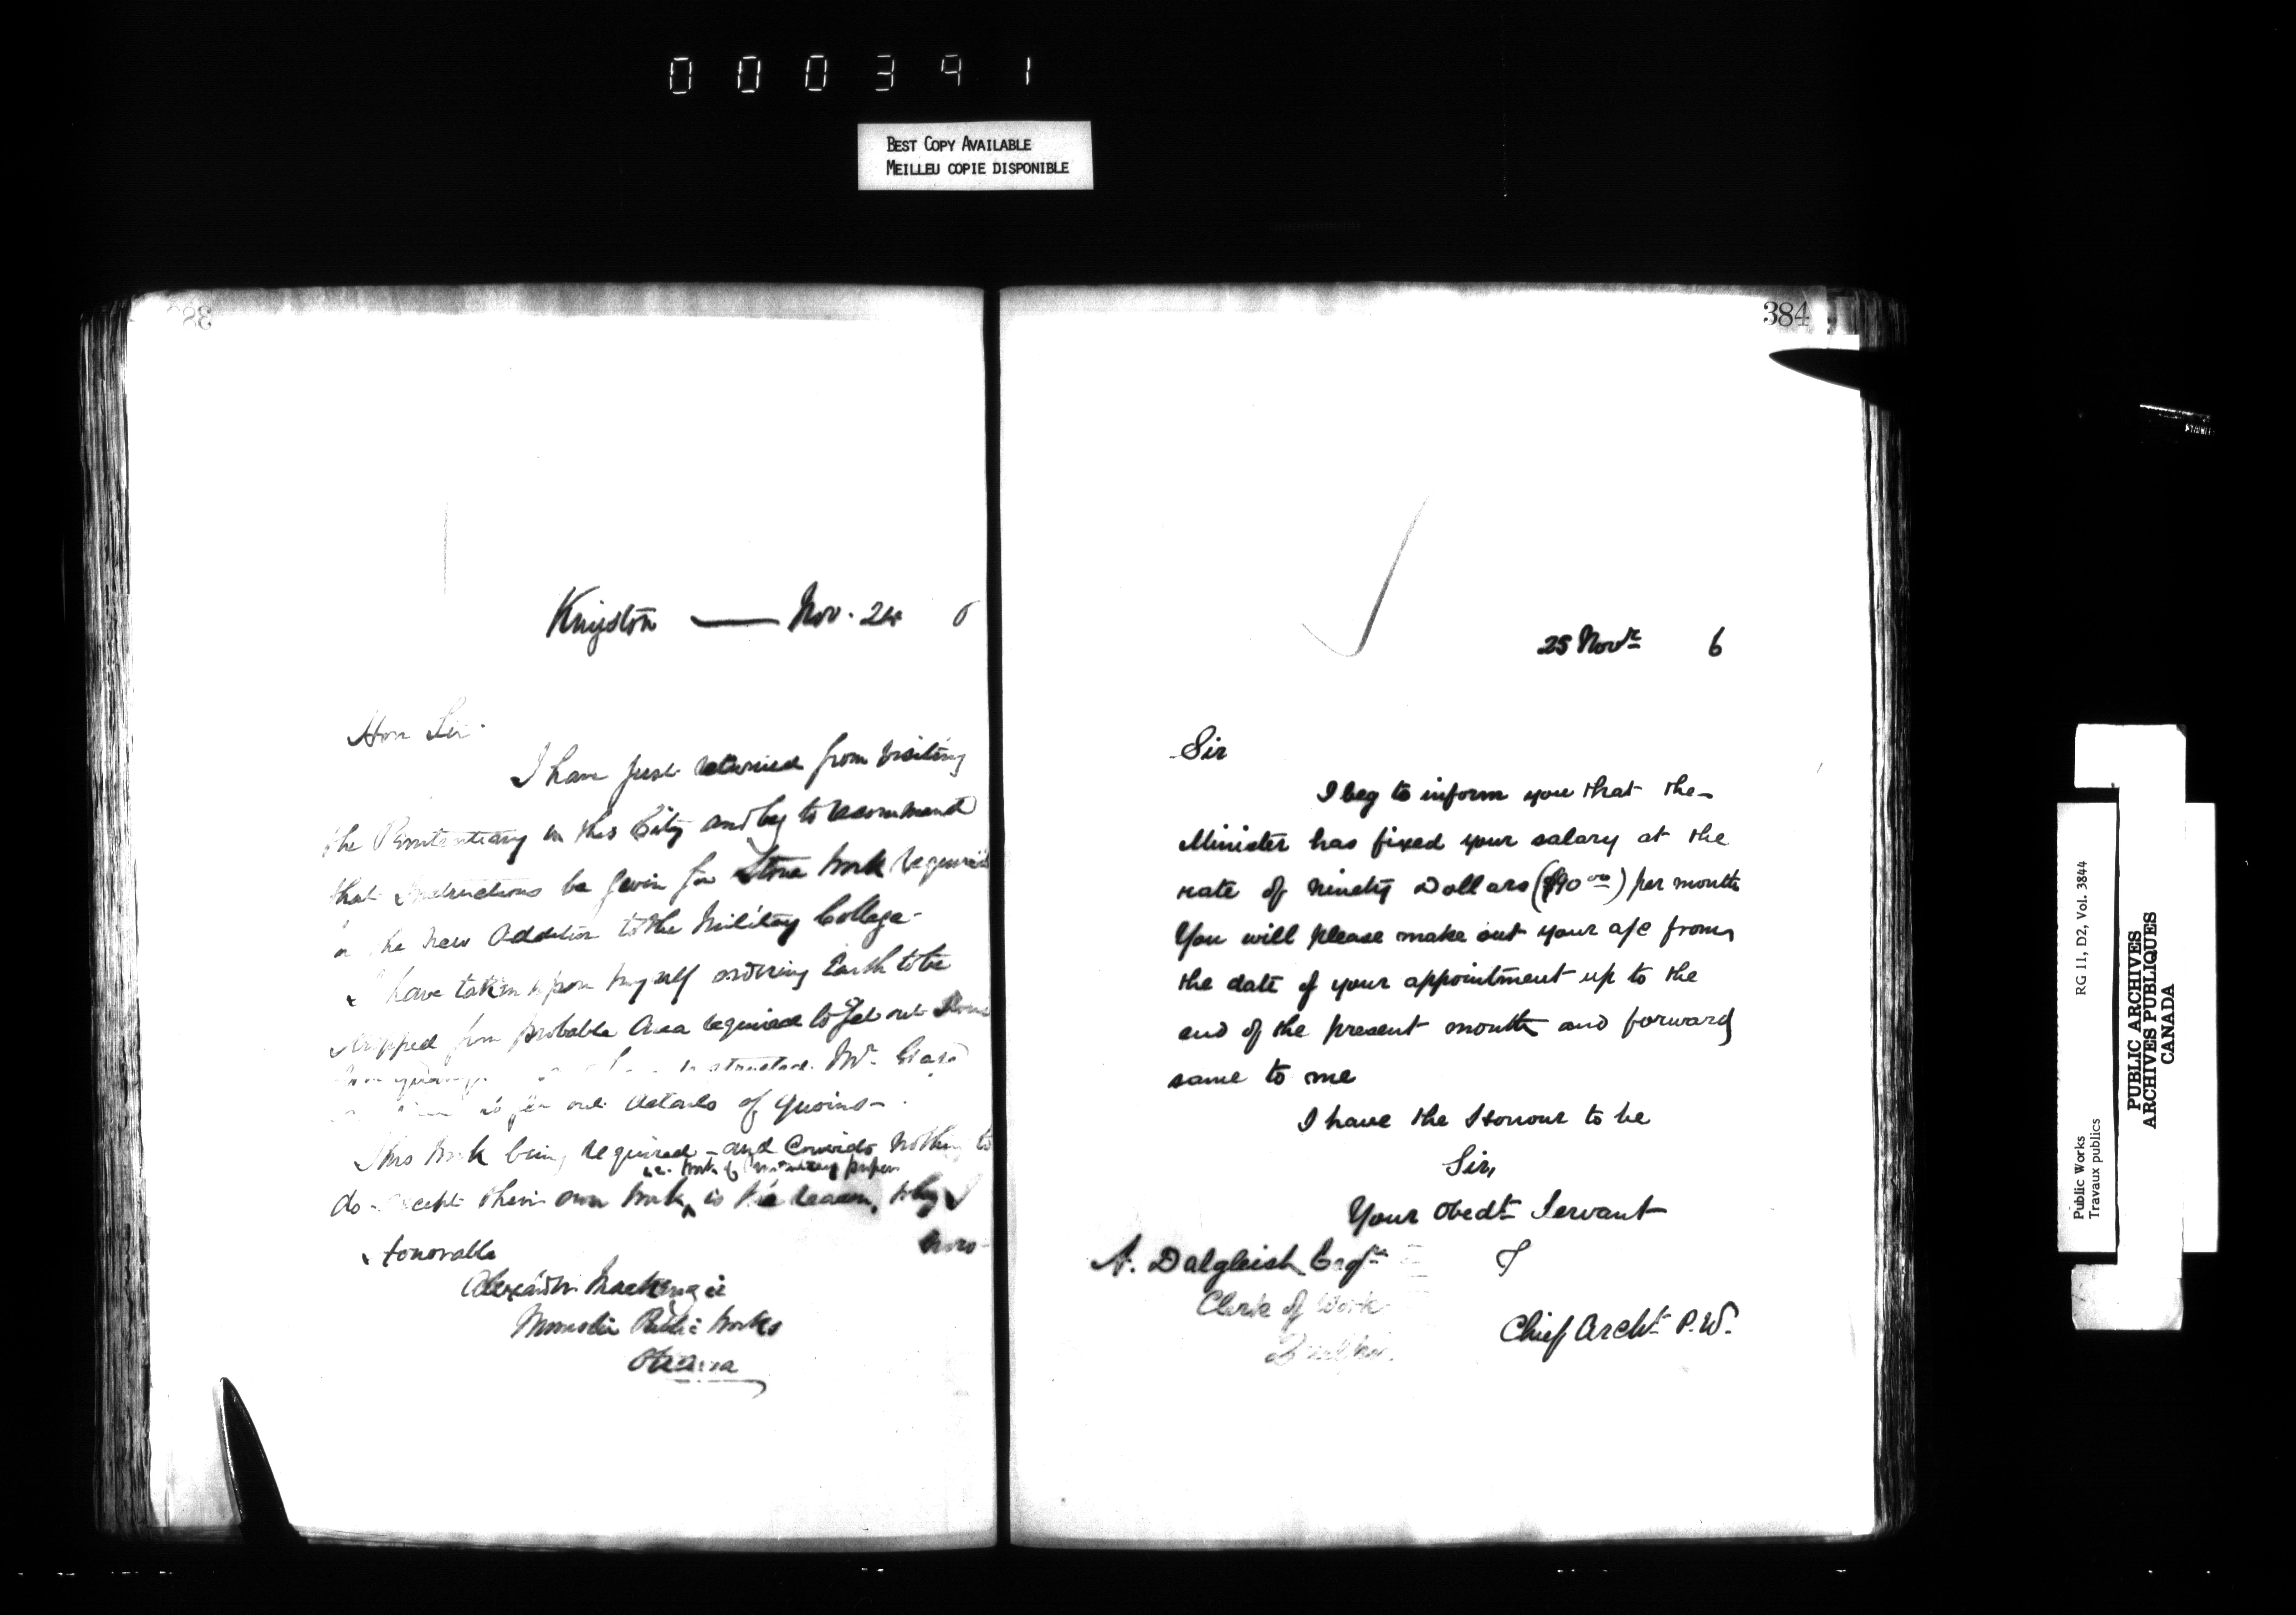 000391
BEST COPY AVAILABLE
MEILLEU COPIE DISPONIBLE
Kingston — Nov. 24 6
Hon Sir
I have just returned from visiting
the Penitentiary in this City and beg to recommend
that Instructions be given for Stone Work required
in the New Addition to the Military College -
I have taken upon myself ordering Earth to be
stripped from probable Area required to get out Stone
Mr.
out details of quoins -
This Work being required - and Convicts nothing to
work of Penitentiary proper
do - except their own Work ^ is the reason, why I
Honorable
Alexander Mackenzie
Minister Public Works
Ottawa
384
25 Novr 6
Sir
I beg to inform you that the
Minister has fixed your salary at the
rate of ninety Dollars ($90 00) per month
You will please make out your a/c from
the date of your appointment up to the
end of the present month and forward
same to me
I have the Honour to be
Sir,
Your Obedt Servant
A. Dalgleish Esqre
Clerk of Works
Chief Archt P.W.
Public Works
Travaux publics
RG 11, D2, Vol. 3844
PUBLIC ARCHIVES
ARCHIVES PUBLIQUES
CANADA